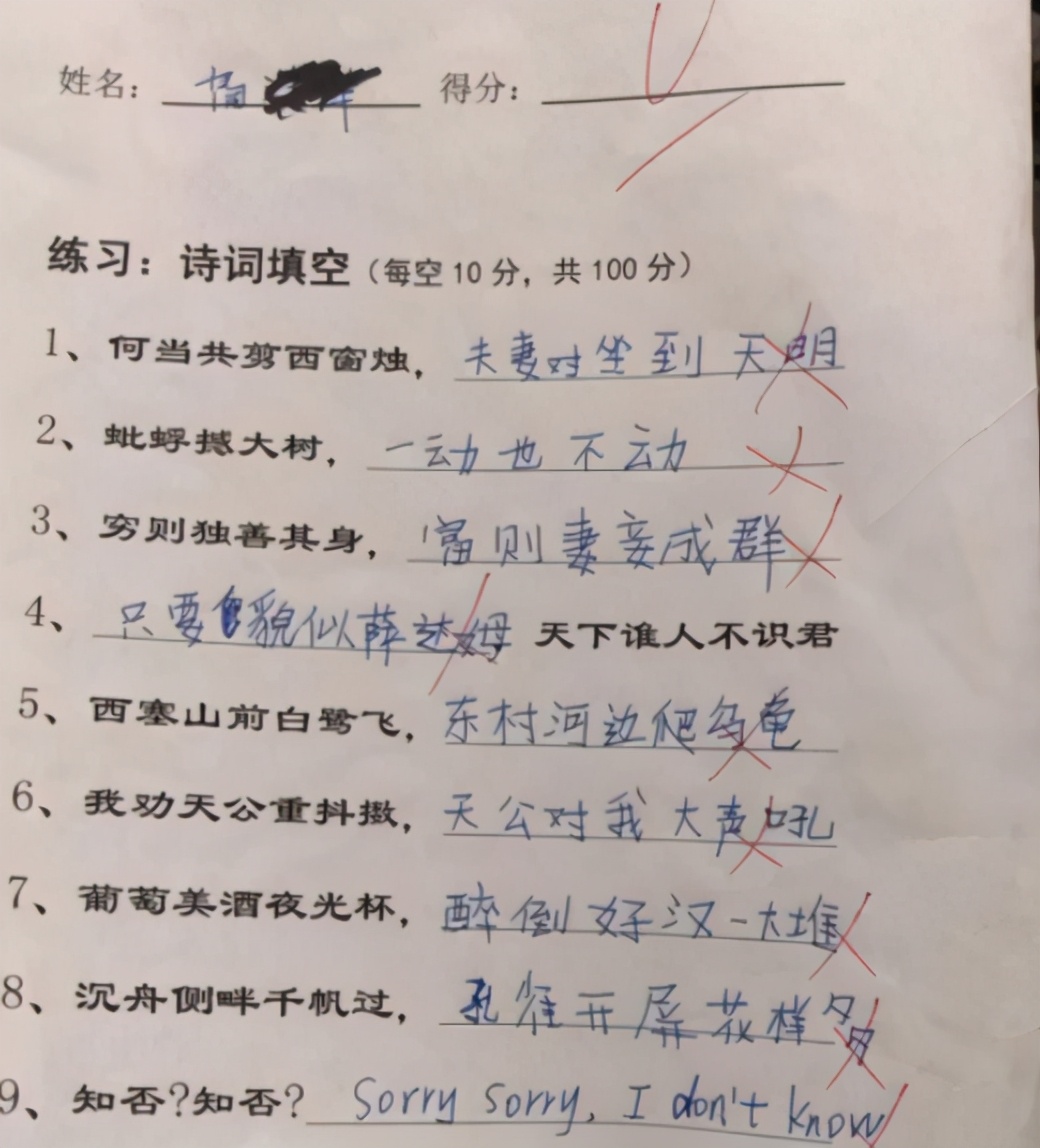 姓名： 得分：
练习：诗词填空（每空10分，共100分）
1、何当共剪西窗烛，夫妻对坐到天明
2、蚍蜉撼大树，一动也不动
3、穷则独善其身，富则妻妾成群
4、只要貌似薛达姆 天下谁人不识君
5、西塞山前白鹭飞，东村河边爬乌龟
6、我劝天公重抖擞，天公对我大声吼
7、葡萄美酒夜光杯，醉倒好汉一大堆
8、沉舟侧畔千帆过，孔雀开屏花样多
9、知否?知否? Sorry sorry, I don't know